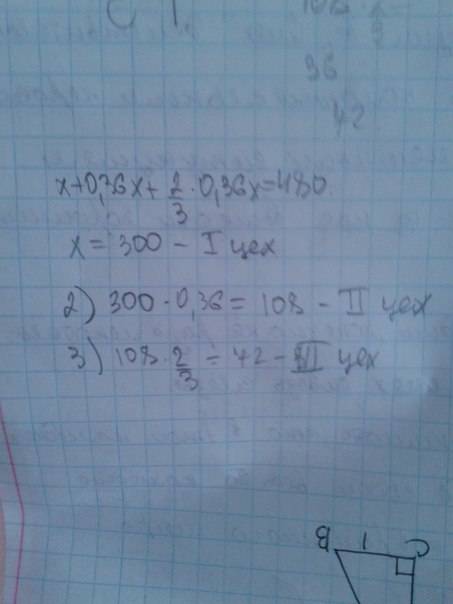 108 · 2/3
36
42
x+0,36x+ 2/3 · 0,36x=480
x = 300 - I цех
2) 300 · 0,36 = 108 - II цех
3) 108 · 2/3 = 42 - III цех
B 1 C